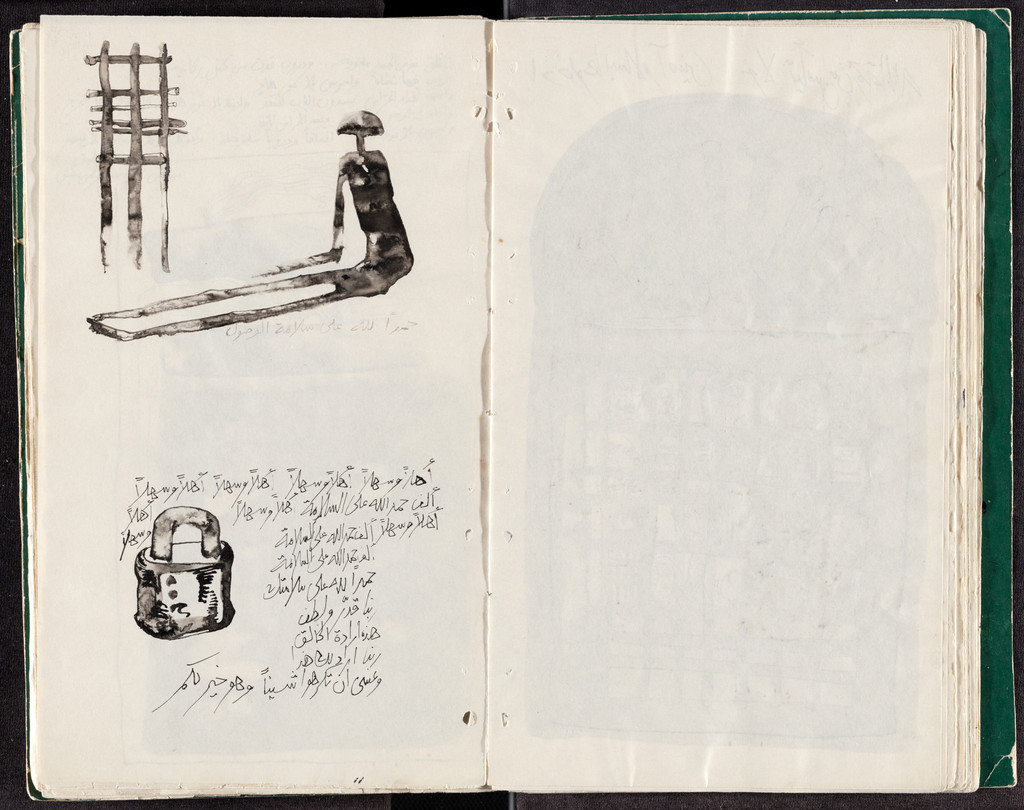 حمداً لله على سلامة الوصول
أهلاً وسهلاً أهلاً وسهلاً أهلاً وسهلاً أهلاً وسهلاً
ألف حمدالله على السلامة أهلاً وسهلاً أهلاً
أهلاً وسهلاً ألف حمدالله على السلامة وسهلاً
ألف حمدالله على السلامة
حمداً لله على سلامتك
ربنا قدّر ولطف
هذه ارادة الخالق
ربنا اراد لك هذا
وعسى ان تكرهوا شيئاً وهو خير لكم